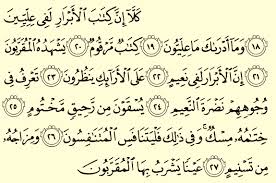 كَلَّآ إِنَّ كِتَٰبَ ٱلْأَبْرَارِ لَفِى عِلِّيِّينَ
﴿١٨﴾ وَمَآ أَدْرَىٰكَ مَا عِلِّيُّونَ ﴿١٩﴾ كِتَٰبٌ مَّرْقُومٌ ﴿٢٠﴾ يَشْهَدُهُ ٱلْمُقَرَّبُونَ
﴿٢١﴾ إِنَّ ٱلْأَبْرَارَ لَفِى نَعِيمٍ ﴿٢٢﴾ عَلَى ٱلْأَرَآئِكِ يَنظُرُونَ ﴿٢٣﴾ تَعْرِفُ فِى
وُجُوهِهِمْ نَضْرَةَ ٱلنَّعِيمِ ﴿٢٤﴾ يُسْقَوْنَ مِن رَّحِيقٍ مَّخْتُومٍ ﴿٢٥﴾
خِتَٰمُهُۥ مِسْكٌ ۚ وَفِى ذَٰلِكَ فَلْيَتَنَافَسِ ٱلْمُتَنَٰفِسُونَ ﴿٢٦﴾ وَمِزَاجُهُۥ
مِن تَسْنِيمٍ ﴿٢٧﴾ عَيْنًا يَشْرَبُ بِهَا ٱلْمُقَرَّبُونَ